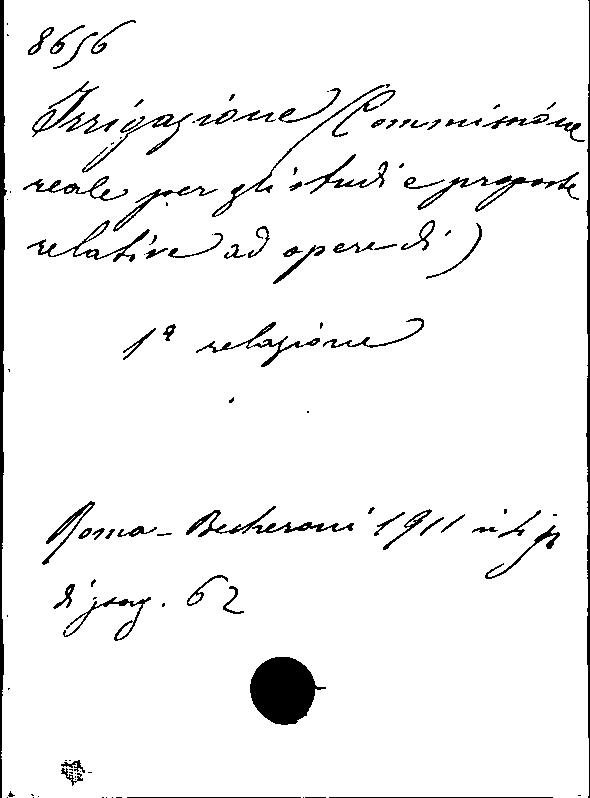 8656
Irrigazione (Commissione
reale per gli studi e proposte
relative ad opere di)
1ª relazione
Roma - Becheroni 1911 in
di pag. 62